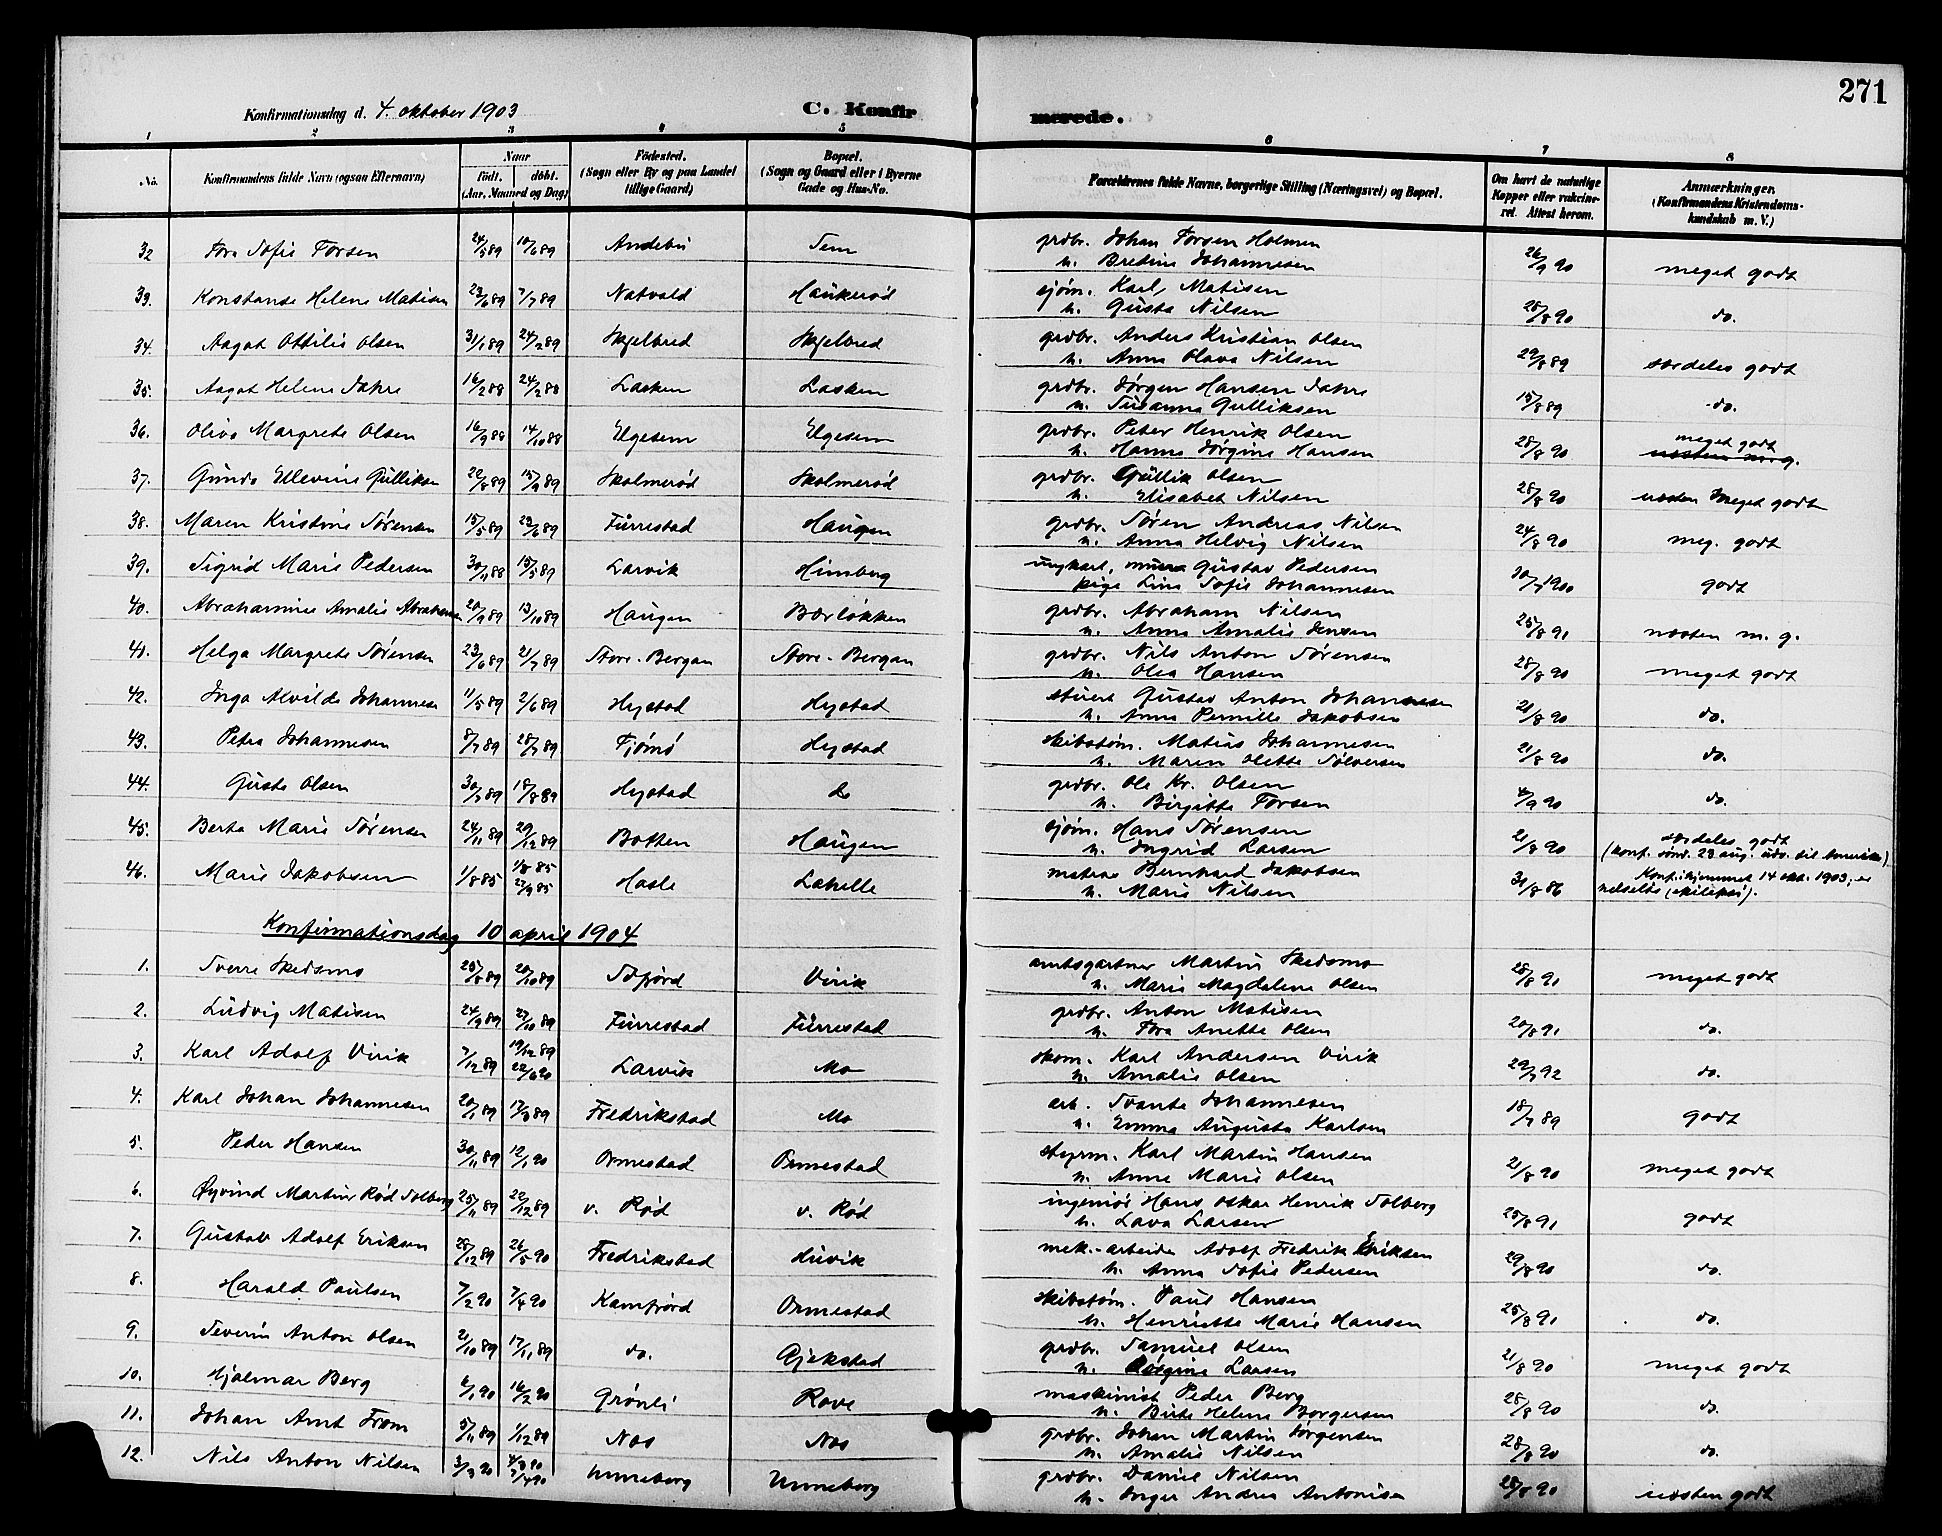 271
Konfirmationsdag d. 4. oktober 1903 C. Konfirmerede.
1 2 3 4 5 6 7 8
No. Konfirmandens fulde Navn (ogsaa Efternavn) Naar født. døbt. (Aar, Maaned og Dag) Fødested. (Sogn eller By og paa Landet tillige Gaard) Bopæl. (Sogn og Gaard eller i Byerne Gade og Hus-No. Forældrenes fulde Navne, borgerlige Stilling (Næringsvei) og Bopæl. Om havt de naturlige Kopper eller vakcineret. Attest herom. Anmærkninger. (Konfirmandens Kristendomskundskab m. V.)
32 Tora Sofie Torsen 24/5 89 10/6 89 Andebu Sem grdbr. Johan Torsen Holmen 26/9 90 meget godt
h. Bredine Johannesen
33. Konstanse Helene Matisen 23/6 89 7/7 89 Natvald Haukerød sjøm. Karl Matisen 28/8 90 do.
h. Gusta Nilsen
34. Aagot Ottilie Olsen 31/1 89 24/2 89 Skjelbred Skjelbred grdbr. Anders Kristian Olsen 29/8 89 særdeles godt
h. Anna Olava Nilsen
35. Aagot Helene Jahre 16/2 88 24/2 88 Lasken Lasken grdbr. Jørgen Hansen Jahre 15/8 89 do.
h. Susanna Gulliksen
36. Oliva Margrete Olsen 16/9 88 14/10 88 Elgesem Elgesem grdbr. Peter Henrik Olsen 28/8 90 meget godt
h. Hanna Jørgine Hansen næsten m. g.
37. Gunda Ellevine Gulliksen 22/8 89 15/9 89 Skolmerød Skolmerød grdbr. Gullik Olsen 28/8 90 næsten meget godt
h. Elisabet Nilsen
38. Maren Kristine Sørensen 15/5 89 23/6 89 Furrestad Haugen grdbr. Søren Andreas Nilsen 24/8 90 meg. godt
h. Anna Helvig Nilsen
39. Sigrid Marie Pedersen 30/11 88 15/5 89 Larvik Himberg ungkarl, Gustav Pedersen 30/7 1900 godt
pige Lina Sofie Johannesen
40. Abrahamine Amalie Abrahamsen 20/9 89 13/10 89 Haugen Bærløkken grdbr. Abraham Nilsen 25/8 91 næsten m. g.
h. Anna Amalie Jensen
41. Helga Margrete Sørensen 23/6 89 21/7 89 Store-Bergan Store-Bergan grdbr. Nils Anton Sørensen 28/8 90 meget godt
h. Olea Hansen
42. Inga Alvilde Johannesen 11/5 89 2/6 89 Hystad Hystad stuert Gustav Anton Johannesen 21/8 90 do.
h. Anna Pernille Jakobsen
43. Petra Johannesen 8/7 89 28/7 89 Tjømø Hystad skibstøm. Matias Johannesen 21/8 90 do.
h. Maren Olette Sølversen
44. Gusta Olsen 30/7 89 18/8 89 Hystad do grdbr. Ole Kr. Olsen 4/9 90 do.
h. Birgitte Torsen
45. Berta Marie Sørensen 24/11 89 29/12 89 Botten Haugen sjøm. Hans Sørensen 21/8 90 særdeles godt
h. Ingrid Larsen (konf. sønd. 23 aug. udv. til Amerika)
46. Marie Jakobsen 1/8 85 1/8 85 27/9 85 Hasle Lahelle matros Bernhard Jakobsen 31/8 86 Konf. i hjemmet 14 okt. 1903, er
h. Marie Nilsen
Konfirmationsdag 10 april 1904
1. Sverre Skedsmo 25/8 89 20/10 89 Tofjørd Virik amtsgartner Martin Skedsmo 28/8 91 meget godt
h. Marie Magdalene Olsen
2. Ludvig Matisen 24/9 89 27/10 89 Furrestad Furrestad grdbr. Anton Matisen 20/8 91 do.
h. Tora Anette Olsen
3. Karl Adolf Virik 7/12 89 19/12 89 22/6 90 Larvik Mo skom. Karl Andersen Virik 29/7 92 do.
h. Amalie Olsen
4. Karl Johan Johannesen 20/1 89 17/3 89 Fredrikstad Mo arb. Svante Johannesen 18/7 89 godt
h. Emma Augusta Karlsen
5. Peder Hansen 30/11 89 12/1 90 Ormestad Ormestad styrm. Karl Martin Hansen 21/8 90 meget godt
h. Anne Marie Olsen
6. Øyvind Martin Rød Solberg 25/11 89 22/12 89 v. Rød v. Rød ingeniør Hans Oskar Henrik Solberg 25/8 91 godt
h. Lava Larsen
7. Gustav Adolf Eriksen 28/12 89 26/5 90 Fredrikstad Huvik mek.-arbeider Adolf Fredrik Eriksen 29/8 90 do.
h. Anna Sofie Pedersen
8. Harald Paulsen 7/2 90 7/4 90 Kamfjord Ormestad skibstøm. Paul Hansen 25/8 91 do.
h. Henriette Marie Hansen
9. Severin Anton Olsen 21/10 89 17/11 89 do. Gjekstad grdbr. Samuel Olsen 21/8 90 meget godt
h. Larsen
10. Hjalmar Berg 6/1 90 16/2 90 Grønli Rove maskinist Peder Berg 28/8 90 do.
h. Birte Helene Borgersen
11. Johan Arnt From 5/11 89 1/12 89 Nos Nos grdbr. Johan Martin Jørgensen 28/8 90 do.
h. Amalie Nilsen
12. Nils Anton Nilsen 3/3 90 4/3 90 7/4 90 Unneberg Unneberg grdbr. Daniel Nilsen 28/8 90 næsten godt
h. Inger Andrea Antonisen